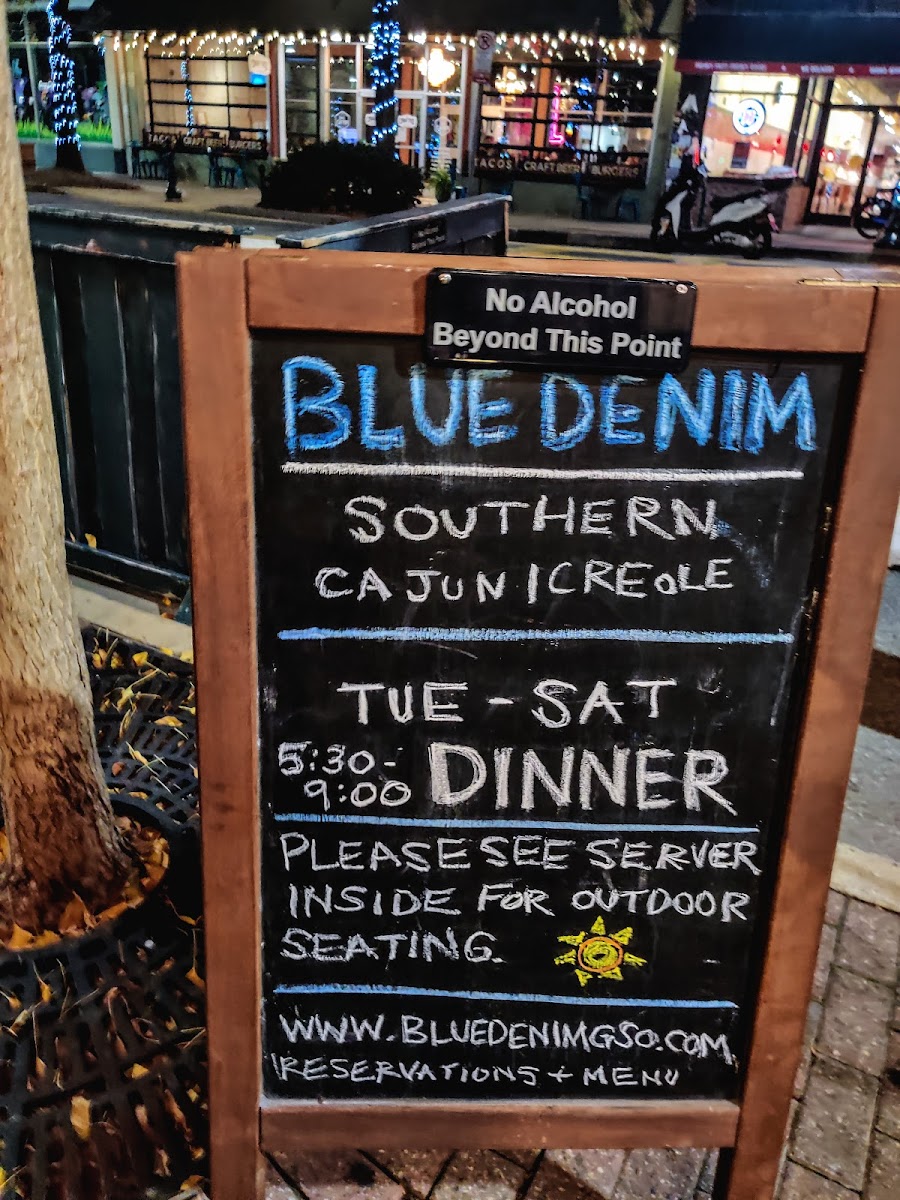 TACOS CRAFT BEER BURGERS
TACOS CRAFT BEER BURGERS
No Alcohol
Beyond This Point
No Alcohol
Beyond This Point
BLUE DENIM
SOUTHERN
CAJUN/CREOLE
TUE - SAT
5:30-
9:00 DINNER
PLEASE SEE SERVER
INSIDE FOR OUTDOOR
SEATING.
WWW.BLUEDENIMGSO.COM
RESERVATIONS + MENU